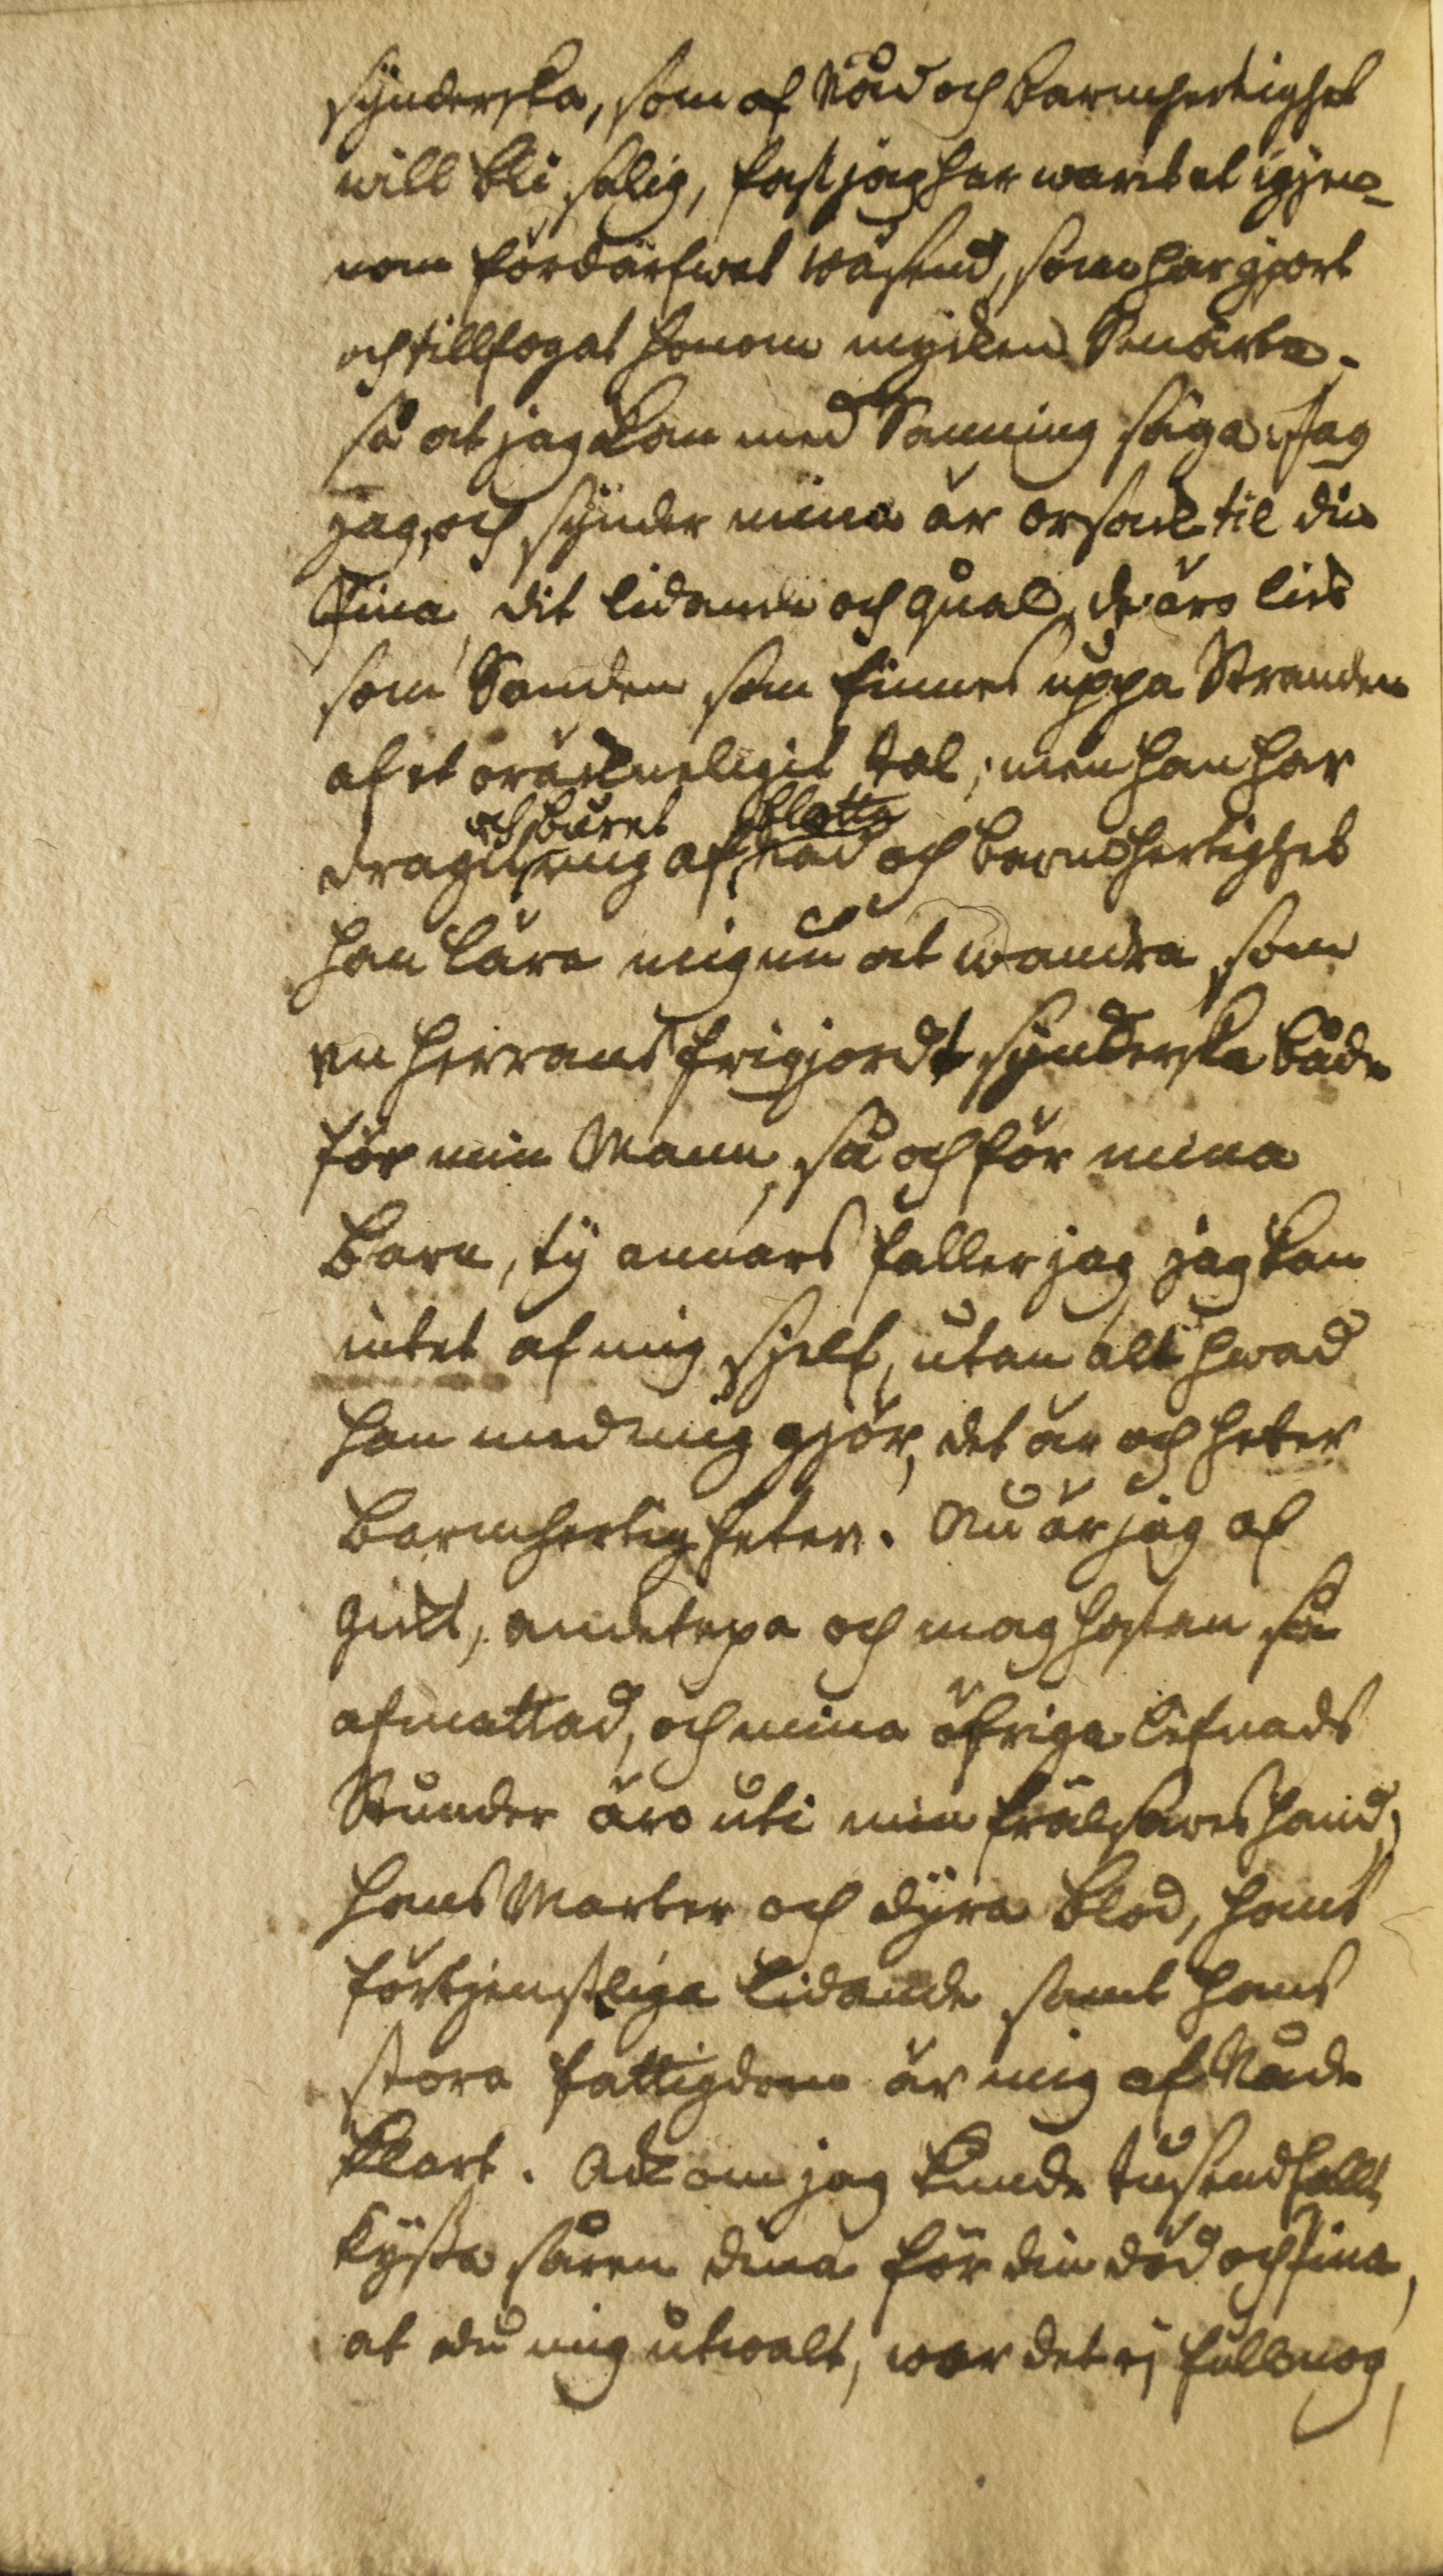 synderska, som af Nåd och barmhertighet
will bli salig, fast jag har warit et igjen-
nom fördärfwat wäsend, som har gjort
och tillfogat honom mycken Smärta.
så at jag kan med Sanning säga: Jag
jag, och synder mina är orsak til din
Pina, dit lidande och qual, de äro lik
som Sanden som finnes uppå Stranden
af et oräkneligit tal; men han har
och burit blotta
dragit mig af nåd och barmhertighet
han lära mig nu at wandra som
en Herrans frigjord synderska både
för min Mann, så och för mina
Barn, ty annars faller jag jag kan
intet af mig sjelf, utan alt hwad
han med mig gjör, det är och heter
Barmhertigheten. Nu är jag af
Gikt, andetepa och mag hosten så
afmattad, och mina öfriga lefnads
Stunder äro uti min frälsares hand;
hans Marter och dyra Blod, hans
förtjenstliga lidande samt hans
stora fattigdom är mig af Nåde
klart. Ack om jag kunde tusendfallt
kyssa såren dina för din död och Pina,
at du mig utwalt, war det ej full nog,